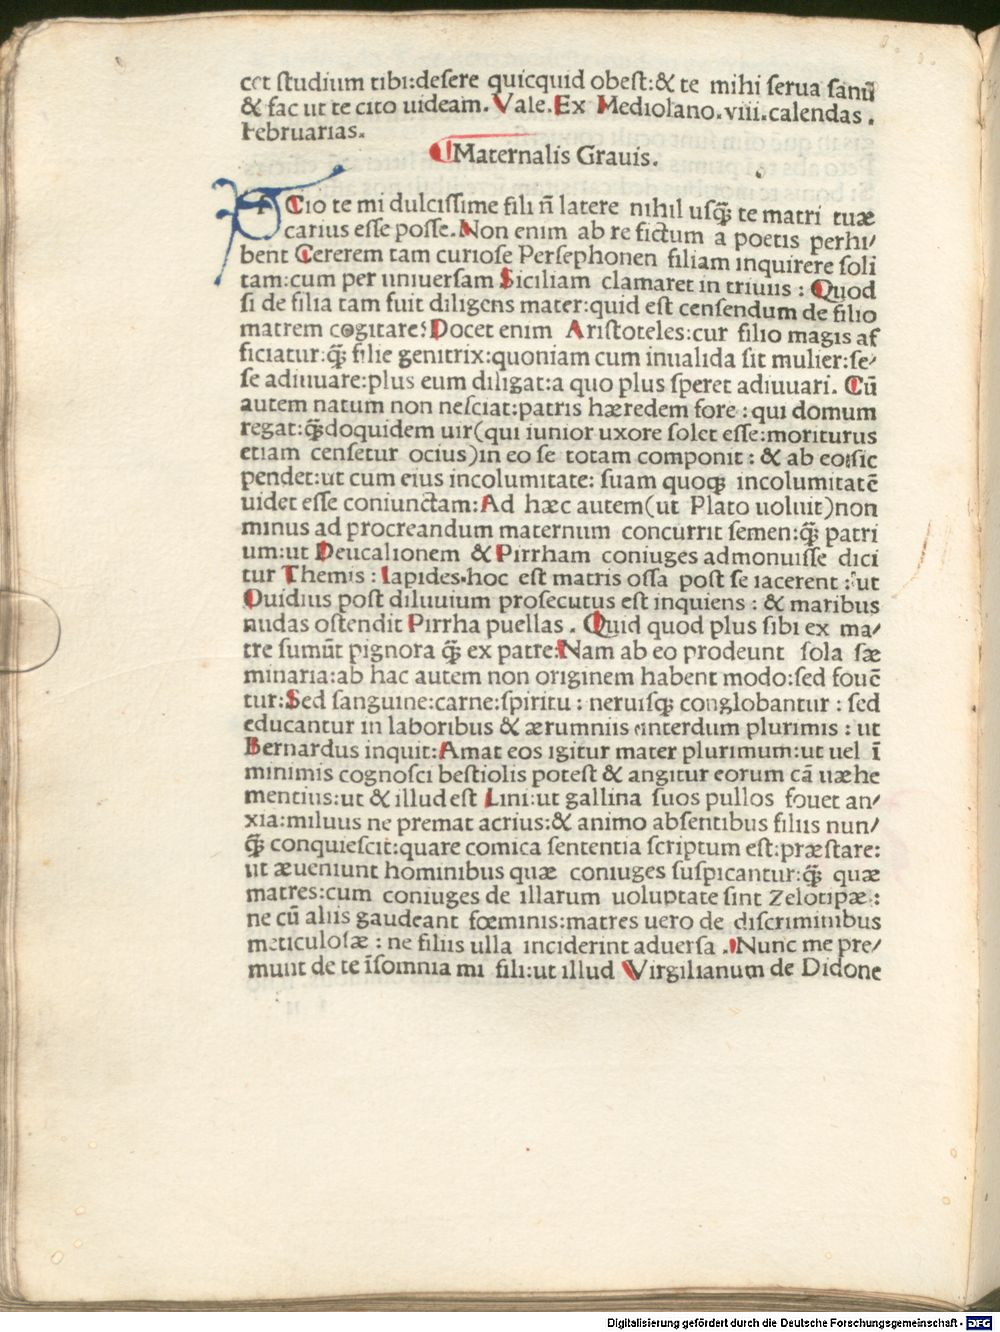 cet studium tibi:desere quicquid obest:& te mihi serua sanū
& fac ut te cito uideam. Vale. Ex Mediolano.viii.calendas.
Februarias.
Maternalis Grauis.
SCio te mi dulcissime fili ñ latere nihil usq̃ te matri tuæ
carius esse posse. Non enim ab re fictum a poetis perhi/
bent Cererem tam curiose Persephonen filiam inquirere soli
tam:cum per uniuersam Siciliam clamaret in triuiis: Quod
si de filia tam fuit diligens mater:quid est censendum de filio
matrem cogitare? Docet enim Aristoteles:cur filio magis af
ficiatur:q̃ filie genitrix:quoniam cum inualida sit mulier:se/
se adiuuare:plus eum diligat:a quo plus speret adiuuari. Cū
autem natum non nesciat:patris hæredem fore: qui domum
regat:q̃doquidem uir(qui iunior uxore solet esse:moriturus
etiam censetur ocius)in eo se totam componit: & ab eo:sic
pendet:ut cum eius incolumitate: suam quoq; incolumitatē
uidet esse coniunctam:Ad hæc autem(ut Plato uoluit)non
minus ad procreandum maternum concurrit semen:q̃ patri
um:ut Deucalionem & Pirrham coniuges admonuisse dici
tur Themis: lapides.hoc est matris ossa post se iacerent: ut
Ouidius post diluuium prosecutus est inquiens: & maribus
nudas ostendit Pirrha puellas. Quid quod plus sibi ex ma/
tre sumūt pignora q̃ ex patre:Nam ab eo prodeunt sola sæ
minaria:ab hac autem non originem habent modo:sed fouē
tur:Sed sanguine:carne:spiritu: neruisq; conglobantur: sed
educantur in laboribus & ærumniis interdum plurimis: ut
Bernardus inquit:Amat eos igitur mater plurimum:ut uel ī
minimis cognosci bestiolis potest & angitur eorum cā uæhe
mentius:ut & illud est Lini:ut gallina suos pullos fouet an/
xia:miluus ne premat acrius:& animo absentibus filiis nun/
q̃ conquiescit:quare comica sententia scriptum est:præstare:
ut æueniunt hominibus quæ coniuges suspicantur:q̃ quæ
matres:cum coniuges de illarum uoluptate sint Zelotipæ:
ne cū aliis gaudeant fœminis:matres uero de discriminibus
meticulosæ: ne filiis ulla inciderint aduersa. Nunc me pre/
munt de te īsomnia mi fili:ut illud Virgilianum de Didone
Digitalisierung gefördert durch die Deutsche Forschungsgemeinschaft - DFG